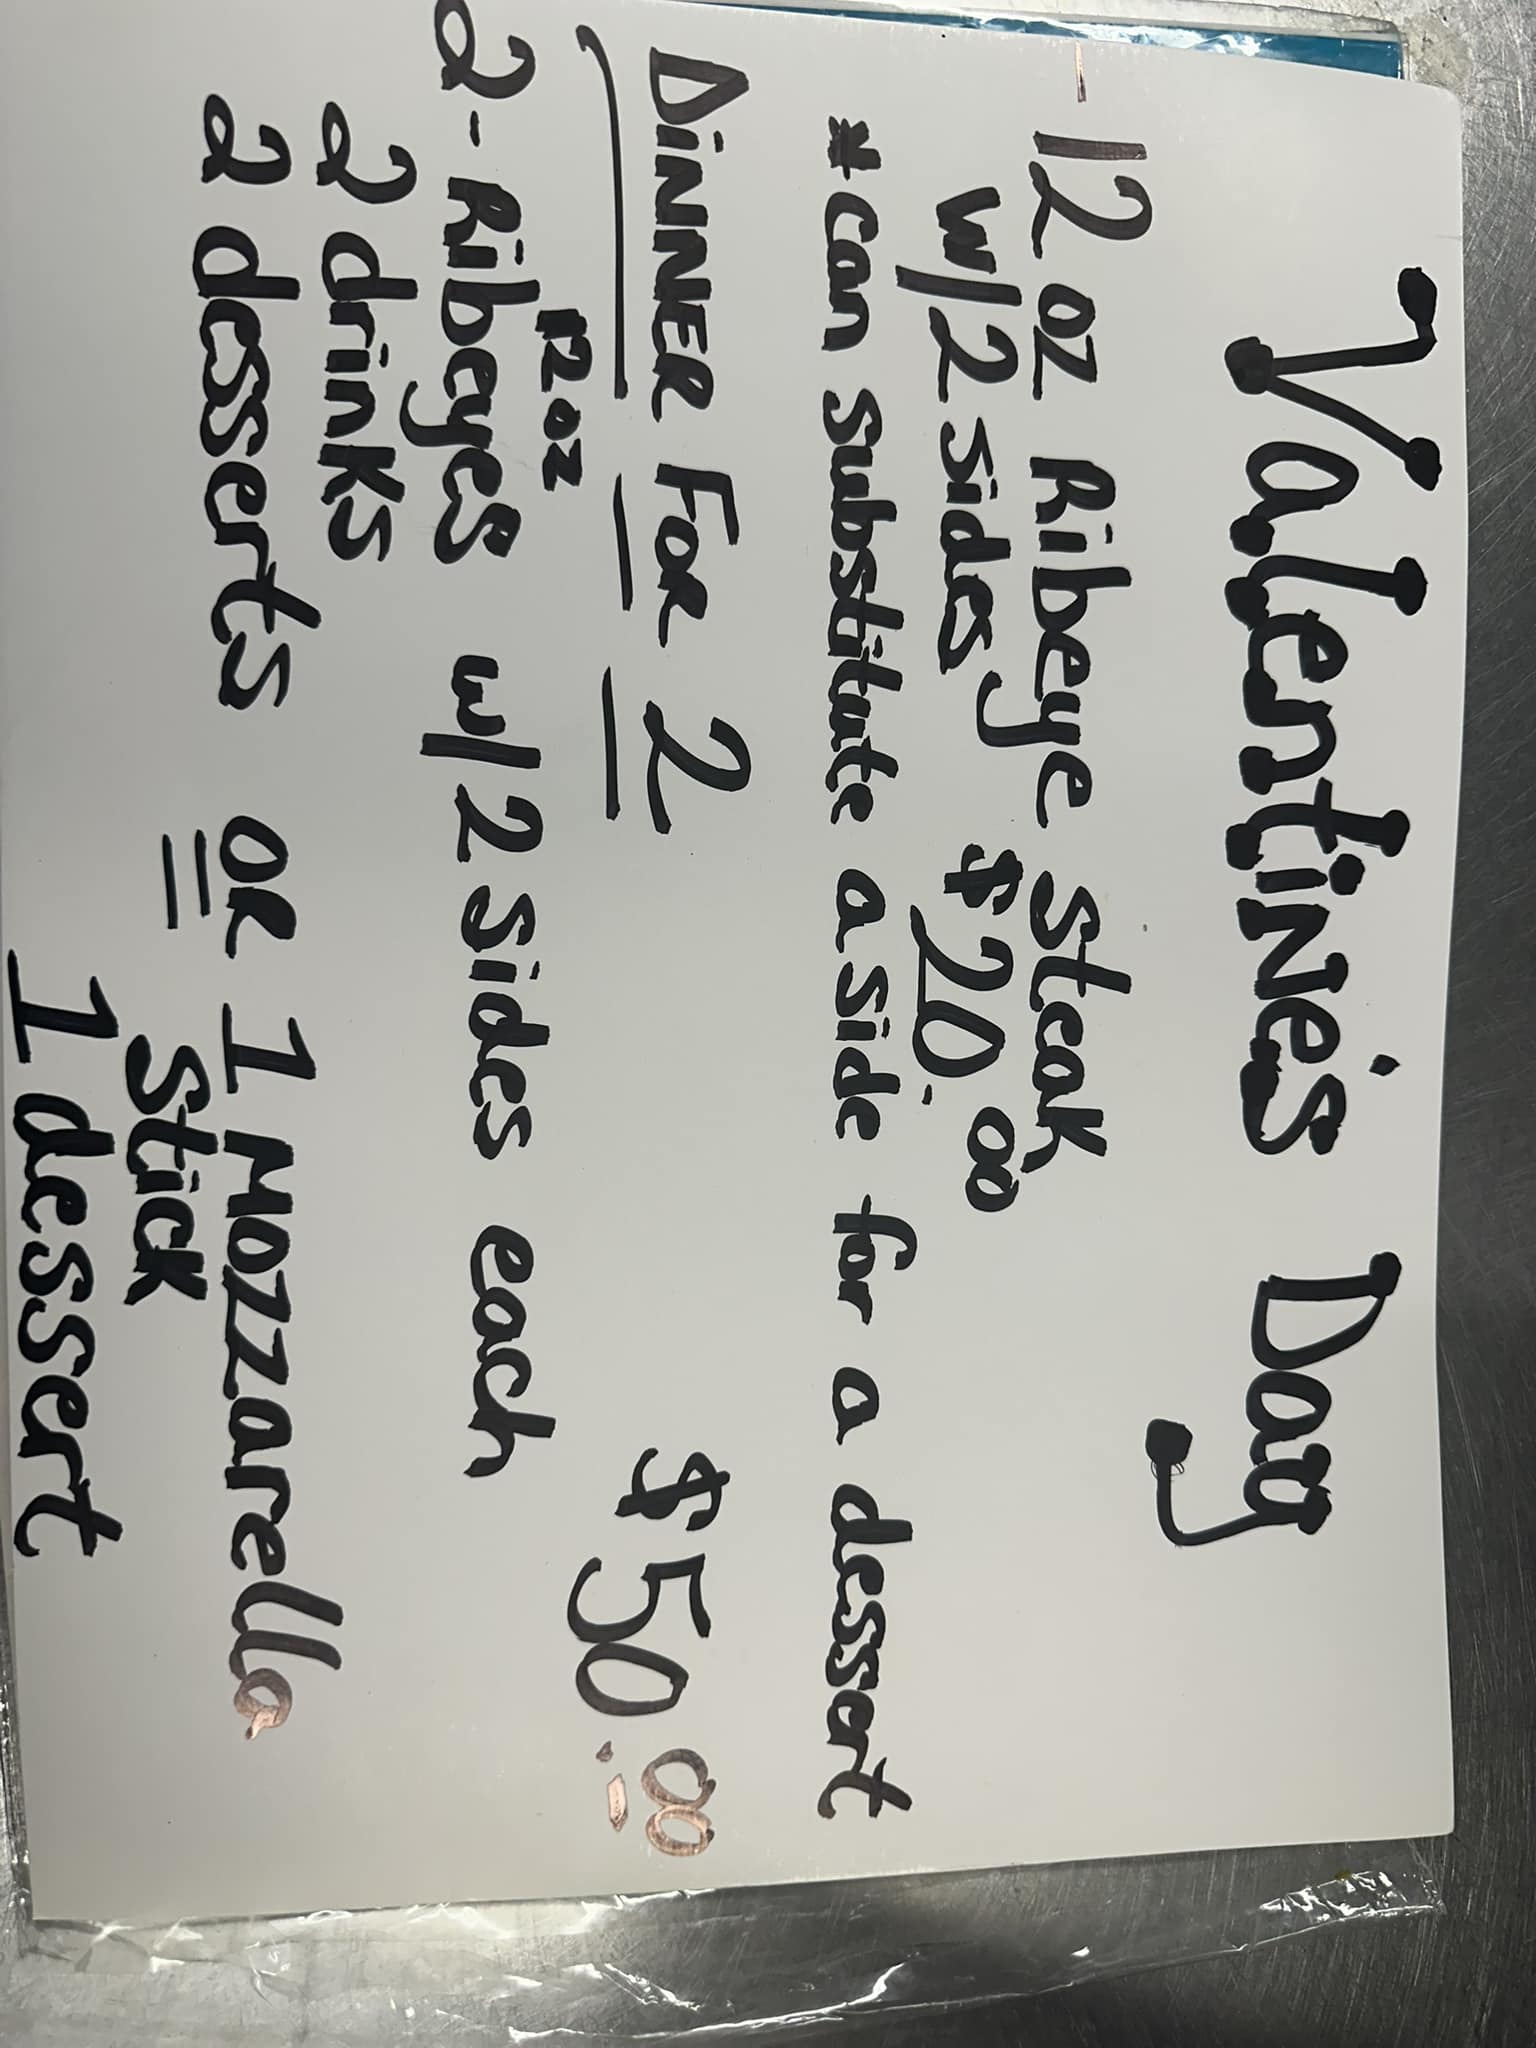 Valentine's Day
-12 oz Ribeye Steak
w/2 sides $20.00
*can substitute a side for a dessert
DINNER FOR 2 $50.00
12oz
2-Ribeyes w/2 sides each
2 drinks
2 desserts OR 1 Mozzarella
Stick
1 dessert